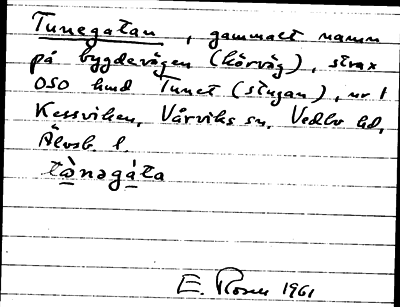 Tunegatan, gammalt namn
på bygdevägen (körväg), strax
OSO om Tunet (stugan), nr 1
Kessviken, Vårviks sn, Vedbo hd,
Älvsb. l.
tὼnəgáta
E. Rosen 1961